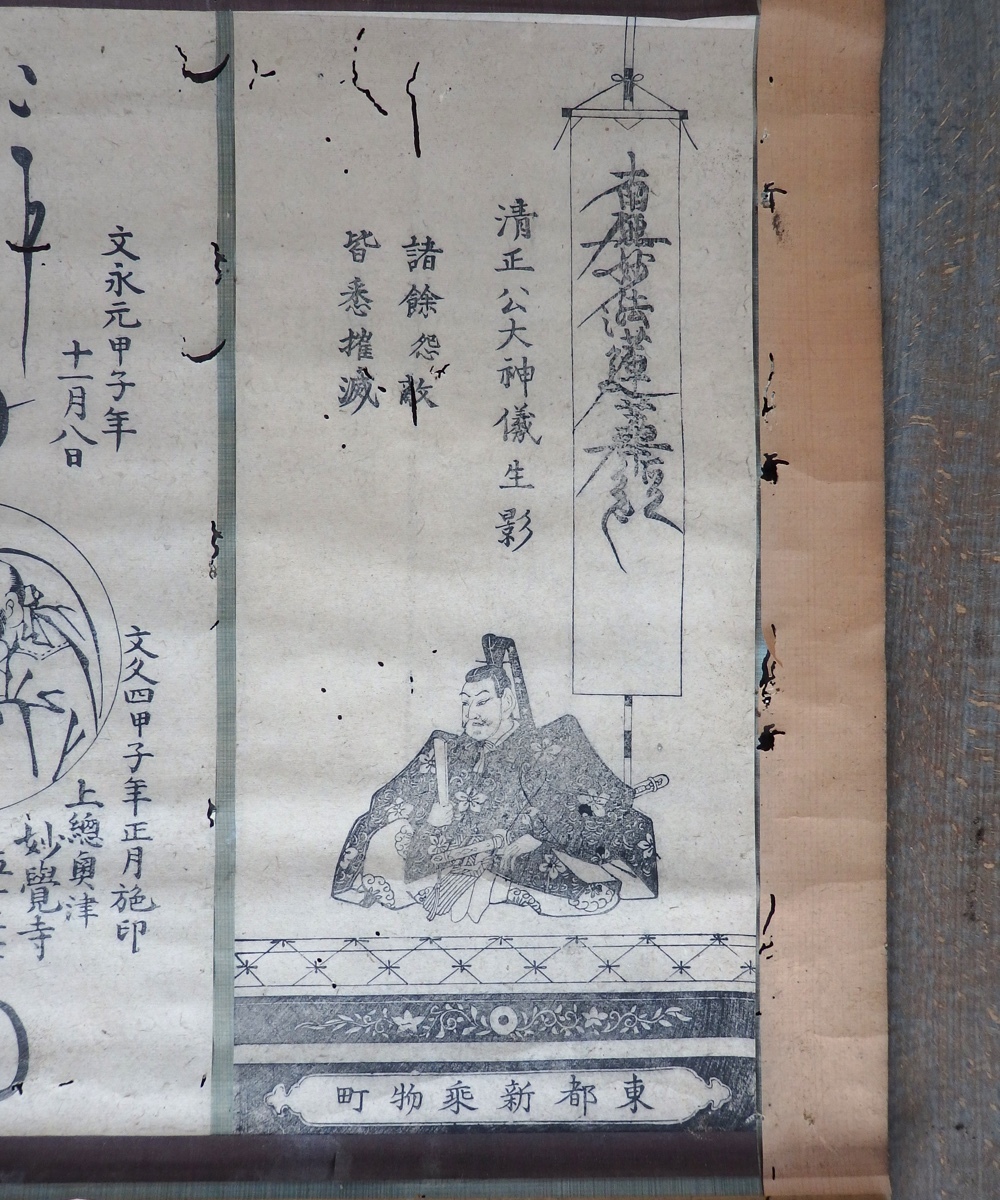 南無妙法蓮華経
清正公大神儀
生影
諸餘怨敵
皆悉摧滅
東都新乘物町
文永元甲子年
十一月八日
文久四甲子年正月施印
上總奥津
妙覺寺